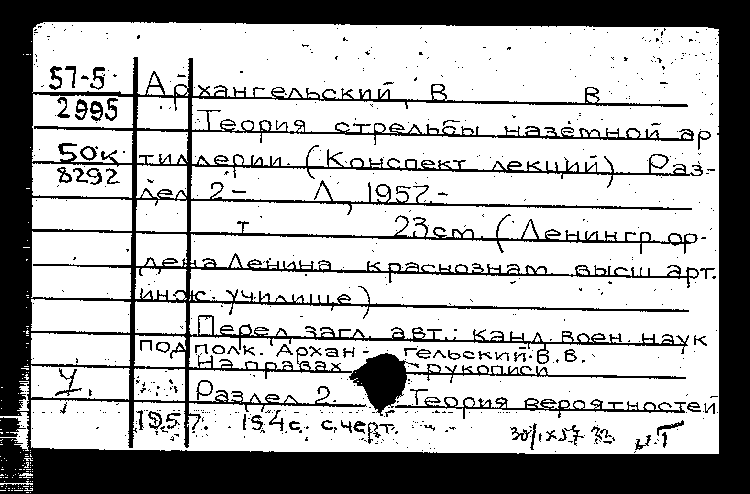 57-5
2995
50к
8292
Архангельский, В В
Теория стрельбы наземной ар-
тиллерии. (Конспект лекций). Раз-
дел 2- Л, 1957.-
т 23см. (Ленингр. ор-
дена Ленина краснознам. высш. арт.
инж. училище)
Перед загл. авт.: канд. воен. наук
подполк. Архангельский В.В.
На правах рукописи
Раздел 2. Теория вероятностей
1957. 154с. с черт.